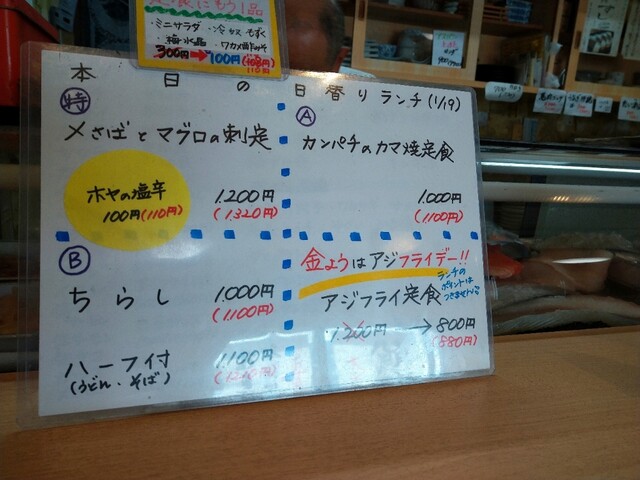 定食にもう1品
・ミニサラダ ・冷奴 もずく
・梅水晶 ・ワカメ酢みそ
300円→100円
110円
本日の日替りランチ(1/19)
特
〆さばとマグロの刺定
1.200円
(1.320円)
ホヤの塩辛
100円(110円)
A
カンパチのカマ焼定食
1.000円
(1.100円)
B
ちらし
1.000円
(1.100円)
ハーフ付
(うどん・そば)
1.100円
(1.210円)
金ようはアジフライデー!!
ランチの
ポイントは
つきません
アジフライ定食
1.200円→800円
(880円)